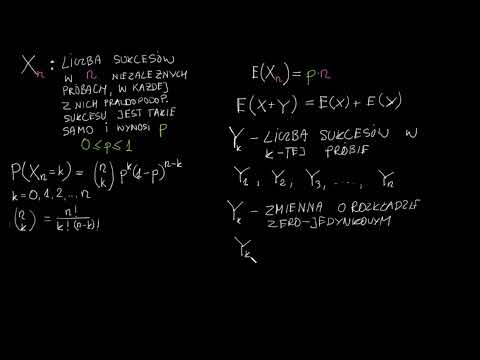 Xₙ : LICZBA SUKCESÓW
W n NIEZALEŻNYCH
PRÓBACH, W KAŻDEJ
Z NICH PRAWDOPODOP.
SUKCESU JEST TAKIE
SAMO I WYNOSI p
0 ≤ p ≤ 1
P(Xₙ=k) = (n k) p^k (1-p)^(n-k)
k = 0, 1, 2, ... n
(n k) = n! / k! (n-k)!
E(Xₙ) = p·n
E(X+Y) = E(X) + E(Y)
Yₖ – LICZBA SUKCESÓW W
K-TEJ PRÓBIE
Y₁ , Y₂ , Y₃ , ...., Yₙ
Yₖ – ZMIENNA O ROZKŁADZIE
ZERO-JEDYNKOWYM
Yₖ